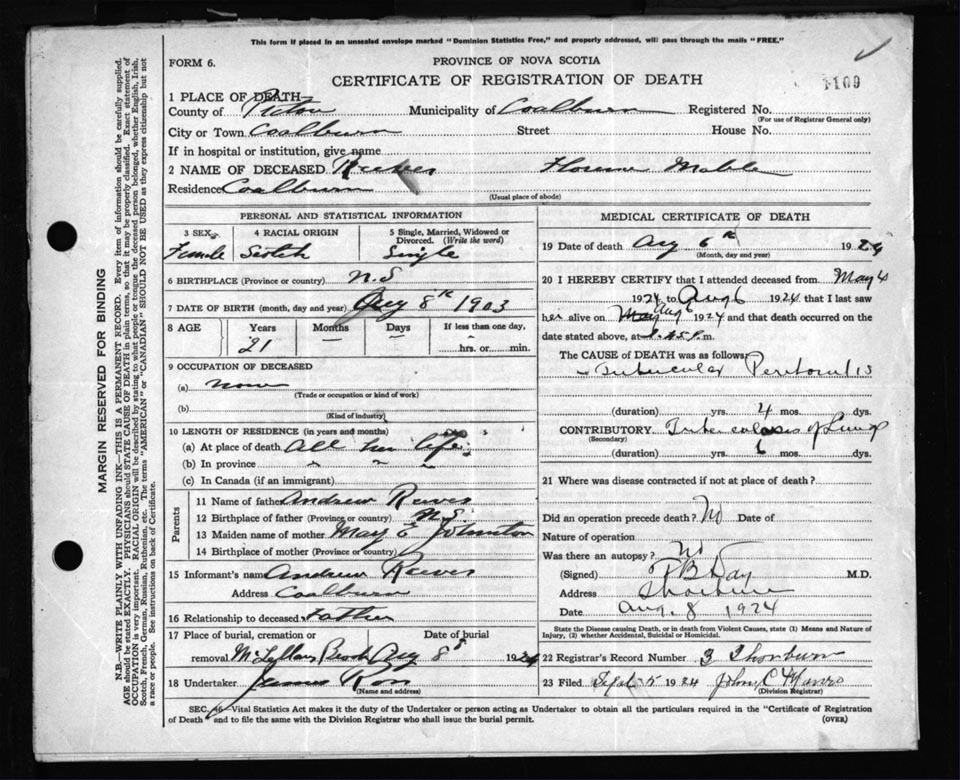 This form if placed in an unsealed envelope marked "Dominion Statistics Free," and properly addressed, will pass through the mails "FREE."
FORM 6.
PROVINCE OF NOVA SCOTIA
CERTIFICATE OF REGISTRATION OF DEATH
1109
1 PLACE OF DEATH—
County of Pictou Municipality of Coalburn Registered No.
(For use of Registrar General only)
City or Town Coalburn Street House No.
If in hospital or institution, give name
2 NAME OF DECEASED Reeves Florence Mable
Residence Coalburn
(Usual place of abode)
PERSONAL AND STATISTICAL INFORMATION
3 SEX 4 RACIAL ORIGIN 5 Single, Married, Widowed or Divorced. (Write the word)
Female Scotch Single
6 BIRTHPLACE (Province or country) N.S
7 DATE OF BIRTH (month, day and year) Aug 8th 1903
8 AGE Years Months Days If less than one day,
21 hrs. or min.
9 OCCUPATION OF DECEASED
(a) none
(Trade or occupation or kind of work)
(b)
(Kind of industry)
10 LENGTH OF RESIDENCE (in years and months)
(a) At place of death All her life
(b) In province " " "
(c) In Canada (if an immigrant)
Parents
11 Name of father Andrew Reeves
12 Birthplace of father (Province or country) N.S.
13 Maiden name of mother May E Johnston
14 Birthplace of mother (Province or country)
15 Informant's name Andrew Reeves
Address Coalburn
16 Relationship to deceased Father
17 Place of burial, cremation or Date of burial
removal McLellans Brook Aug 8th 1924
18 Undertaker James
(Name and address)
MEDICAL CERTIFICATE OF DEATH
19 Date of death Aug 6th 1924
(Month, day and year)
20 I HEREBY CERTIFY that I attended deceased from May 4
1924 to Aug 6 1924 that I last saw
her alive on Aug 6 1924 and that death occurred on the
date stated above, at .45 p.m.
The CAUSE OF DEATH was as follows:
Tubercular Peritonitis
(duration) yrs. 4 mos. dys.
CONTRIBUTORY Tuberculosis of Lungs
(Secondary)
(duration) yrs. 6 mos. dys.
21 Where was disease contracted if not at place of death?
Did an operation precede death? No Date of
Nature of operation
Was there an autopsy? No
(Signed) Day M.D.
Address Thorburn
Date Aug. 8 1924
State the Disease causing Death, or in death from Violent Causes, state (1) Means and Nature of
Injury, (2) whether Accidental, Suicidal or Homicidal.
22 Registrar's Record Number 3 Thorburn
23 Filed Sept 5 1924 John C Munro
(Division Registrar)
SEC. 46—Vital Statistics Act makes it the duty of the Undertaker or person acting as Undertaker to obtain all the particulars required in the "Certificate of Registration
of Death" and to file the same with the Division Registrar who shall issue the burial permit. (OVER)
MARGIN RESERVED FOR BINDING
N.B.—WRITE PLAINLY WITH UNFADING INK—THIS IS A PERMANENT RECORD. Every item of information should be carefully supplied.
AGE should be stated EXACTLY. PHYSICIANS should STATE CAUSE OF DEATH in plain terms, so that it may be properly classified. Exact statement of
OCCUPATION is very important. RACIAL ORIGIN will be described by stating to what people or tongue the deceased person belonged, whether English, Irish,
Scotch, French, German, Russian, Ruthenian, etc. The terms "AMERICAN" or "CANADIAN" SHOULD NOT BE USED as they express citizenship but not
a race or people. See instructions on back of Certificate.